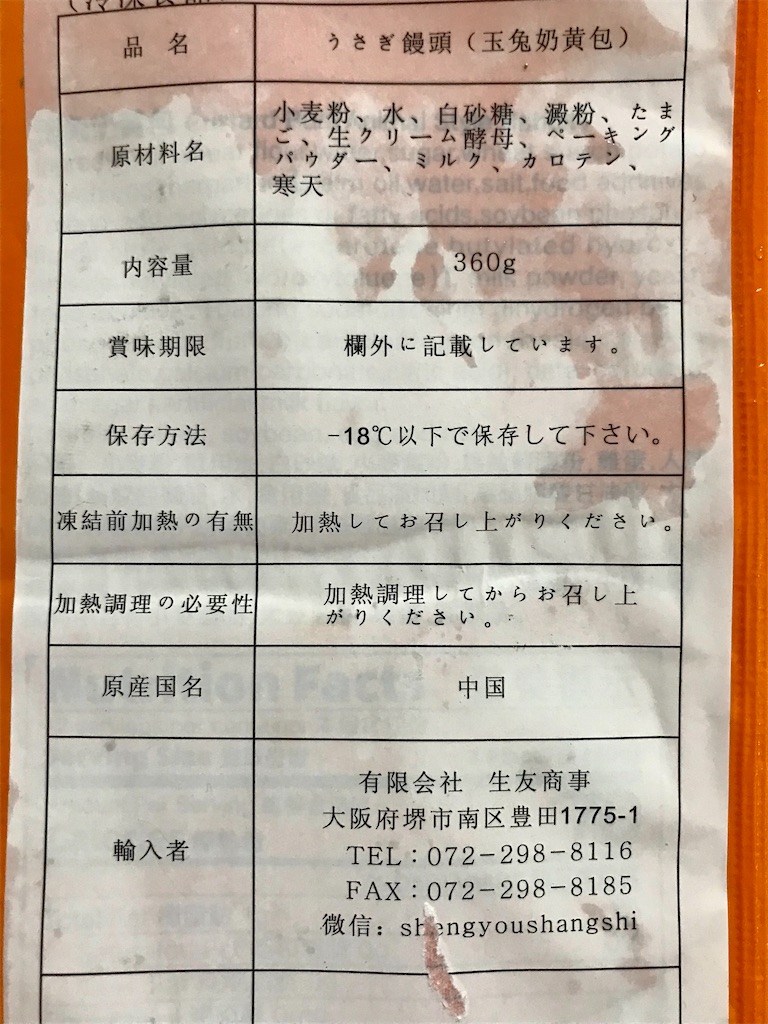 品 名
うさぎ饅頭（玉兔奶黄包）
原材料名
小麦粉、水、白砂糖、澱粉、たま
ご、生クリーム酵母、ベーキング
パウダー、ミルク、カロテン、
寒天
内容量
360g
賞味期限
欄外に記載しています。
保存方法
-18℃以下で保存して下さい。
凍結前加熱の有無
加熱してお召し上がりください。
加熱調理の必要性
加熱調理してからお召し上
がりください。
原産国名
中国
輸入者
有限会社 生友商事
大阪府堺市南区豊田1775-1
TEL：072-298-8116
FAX：072-298-8185
微信：shengyoushangshi